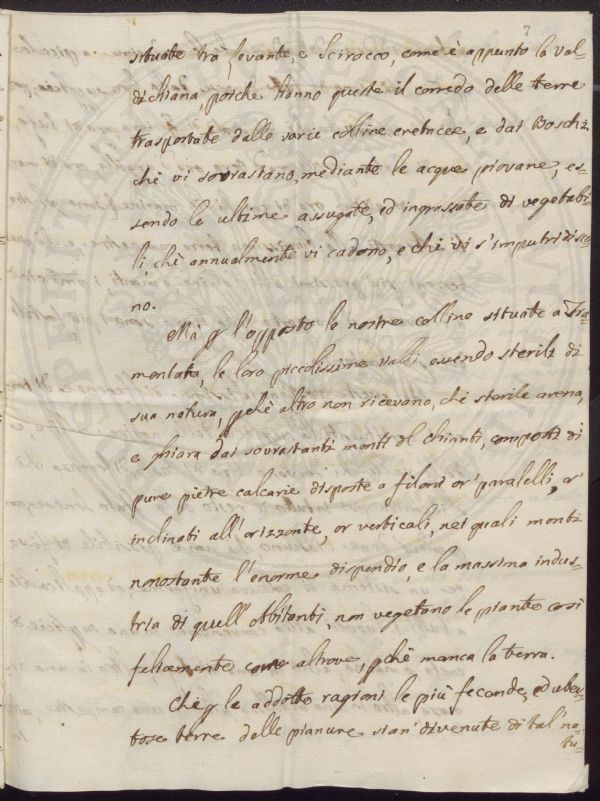 7
situate tra Levante, e Scirocco, come è appunto la val-
dichiana, poiche hanno queste il corredo delle terre
trasportate dalle varie colline cretacee, e dai Boschi,
chè vi sovrastano, mediante le acque piovane, es-
sendo le ultime assugate, ed ingrassate di vegetabi-
li, chè annualmente vi cadono, e chè vi s'imputridisco-
no.
Mà p l'opposto le nostre colline situate a Tra-
montata, le loro piccolissime valli essendo sterili di
sua natura, pchè altro non ricevano, chè sterile arena,
e ghiara dai sovrastanti monti del Chianti, composti di
pure pietre calcarie disposte a filoni or' paralelli, or'
inclinati all'orizzonte, or verticali, nei quali monti
nonostante l'enorme dispendio, e la massima indus-
tria di quell'Abitanti, non vegetano le piante così
felicemente come altrove, pchè manca la terra.
Chè p le addotte ragioni le più feconde, ed ubер-
tose terre delle pianure sian' divenute di tal' na-
tu-